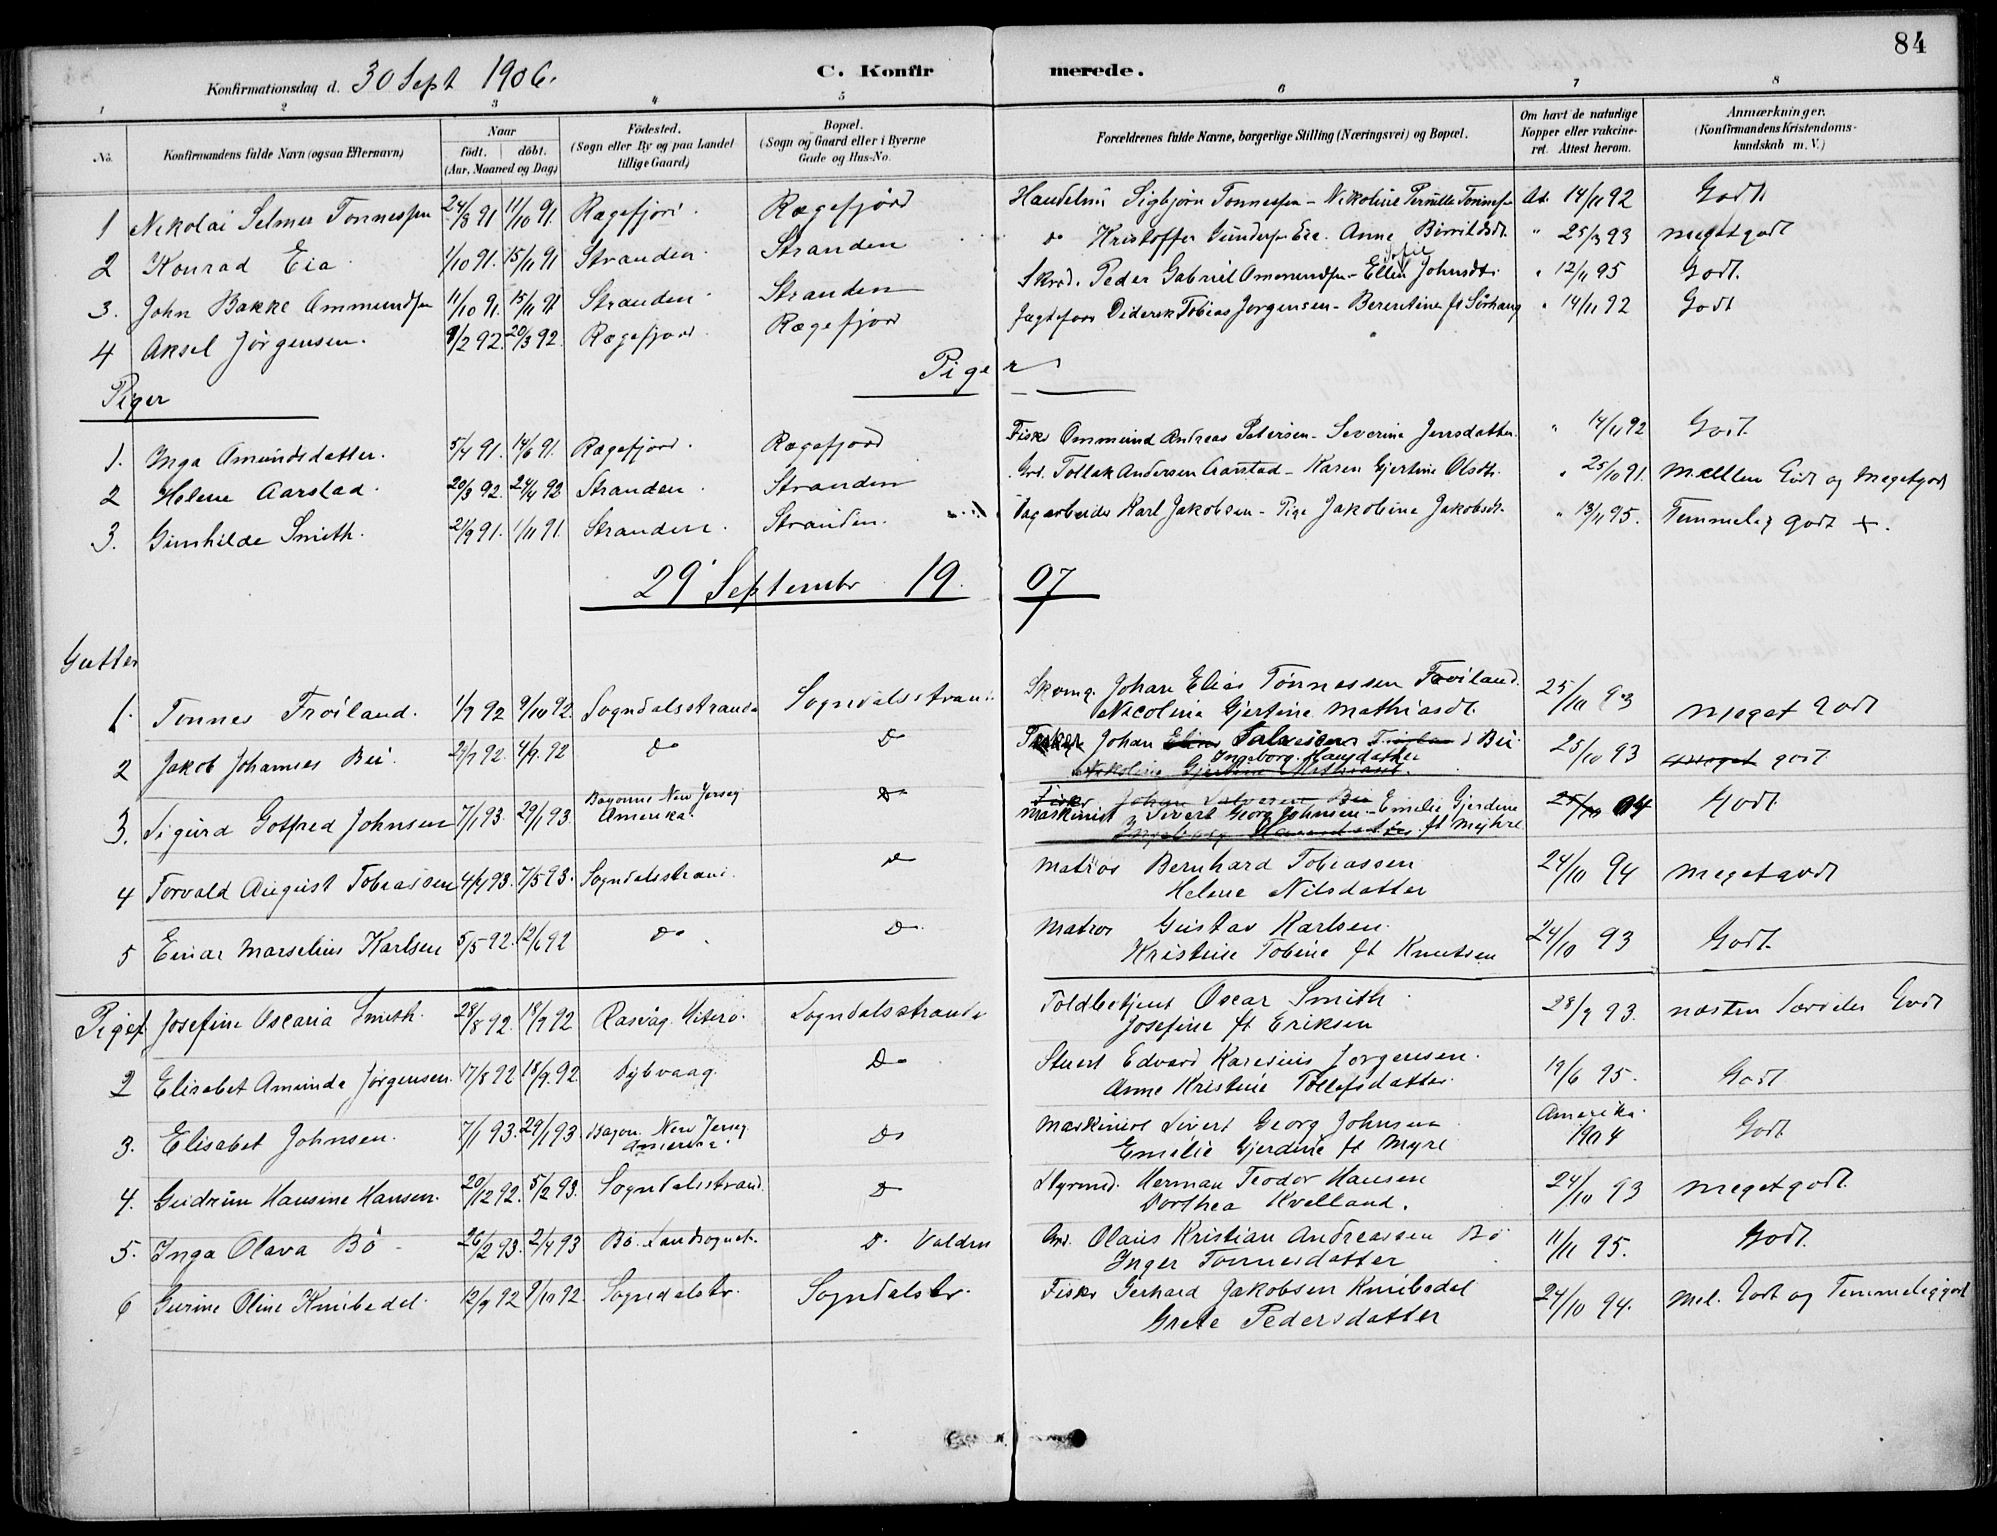 84
Konfirmationsdag d. 30 Sept 1906.
C. Konfirmerede.
1 2 3 4 5 6 7 8
No. Konfirmandens fulde Navn (ogsaa Efternavn) Naar født. døbt. (Aar, Maaned og Dag) Fødested. (Sogn eller By og paa Landet tillige Gaard) Bopæl. (Sogn og Gaard eller i Byerne Gade og Hus-No. Forældrenes fulde Navne, borgerlige Stilling (Næringsvei) og Bopæl. Om havt de naturlige Kopper eller vakcineret. Attest herom. Anmærkninger. (Konfirmandens Kristendomskundskab m. V.)
1 Nikolai Selmer Tonnessen 24/8 91 11/10 91. Rægefjord. Rægefjord Sigbjørn Tonnessen - Nikoline Pernille Tonnessen At. 14/11 92 Godt
2 Konrad Eia 1/10 91. 15/11 91 Stranden. Stranden do Kristoffer Eia. Anne " 25/3 93 meget godt
3. John Bakke Ommundsen 11/10 91. 15/11 91 Stranden. Stranden Skræd. Peder Gabriel Ommundsen - Ellen Sofie Johnsdt. " 12/11 95 Godt.
4 Aksel Jørgensen. 9/2 92. 20/3 92. Rægefjord. Rægefjord Diderik Tobias Jørgensen - Berentine ft Sørhaug " 14/11 92 Godt
Piger
Piger
1. Inga Amundsdatter. 5/4 91. 14/6 91. Rægefjord. Rægefjord Fisker Ommund Andreas Petersen - Severine Jensdatter. " 14/11 92 Godt.
2 Helene Aarstad. 20/3 92. 24/4 92 Stranden. Stranden Grd. Tollak Andersen Aarstad - Karen Gjertine Olsdt. " 25/10 91. Mællem Godt og Megetgodt
3. Gunhilde Smith. 21/9 91. 1/11 91. Stranden. Stranden. Dagarbeider Karl Jakobsen - Pige Jakobine Jakobsdt. " 13/11 95. Temmelig godt +.
29 Septembr 1907
Gutter
1. Tonnes Frøiland. 1/7 92 9/10 92. Sogndalsstrand Sogndalsstrand. Skomg. Johan Elias Tønnessen Frøiland. 25/10 93 meget Godt
Nicoline Gjertine Mathiasdt.
2 Jakob Johannes Bø. 4/9. 92 do Do Fisker Johan Elias Salvesen Bø. 25/10 93 meget godt
Ingeborg Hansdatter
Nikoline Gjertine Mathiasdt.
3. Sigurd Gotfred Johnsen 7/1 93. 29/1 93. Bayonne New Jersey Amerika. Do Fisker Johan Salvesen Bø 04 Godt.
Maskinist Sivert Georg Johnsen - Emelie Gjerdine
Ingeborg Hansdatter ft Myhre
4 Torvald August Tobiassen 4/4 93. 7/5 93. Sogndalsstrand. do Matros Bernhard Tobiassen 24/10 94 Megetgodt
Helene Nilsdatter
5 Einar Marselius Karlsen 5/5 92. 12/6 92 do Do. Matros Gustav Karlsen. 24/10 93 Godt.
Kristine Tobine ft Knutsen
Piger Josefine Oscaria Smith. 28/8 92. 18/9 92 Rasvåg. Hiterø. Sogndalsstrand Toldbetjent Oscar Smith. 28/9 93. næsten Særdeles Godt
Josefine ft Eriksen
2 Elisabet Amunda Jørgensen. 17/8 92 18/9. 92 Dybvaag. Do Stuert Edvard Jørgensen. 19/6 95. Godt
Anne Kristine Tollefsdatter.
3. Elisabet Johnsen. 7/1 93. 29/1 93. Bayon. New Jersey Amerika Do Maskinist Sivert Georg Johnsen Amerika. 1904 Godt
Emelie Gjerdine ft Myre
4. Gudrun Hansine Hansen. 20/12 92. 5/2 93. Sogndalsstrand. Do Styrmd. Herman Teodor Hansen 24/10 93 Megetgodt.
Dorthea Kvelland.
5. Inga Olava Bø 26/2 93. 2/4 93 Bø. Landsognet. D. Valdem Grd. Olaus Kristian Andreassen Bø 11/11 95. Godt.
Inger Tonnesdatter
6 Gurine Oline Knibedal. 12/9 92 9/10 92. Sogndalstr. Sogndalstr. Fisker Gerhard Jakobsen Knibedal 24/10 94. Mel. Godt og Temmeliggodt
Grete Pedersdatter